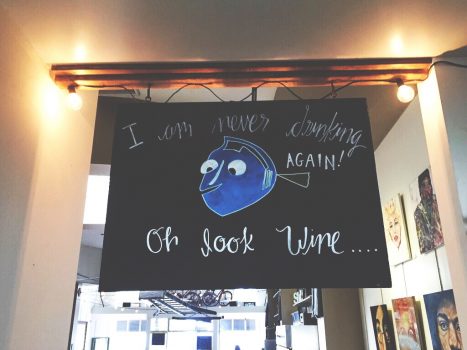 I am never drinking
AGAIN!
Oh look Wine....